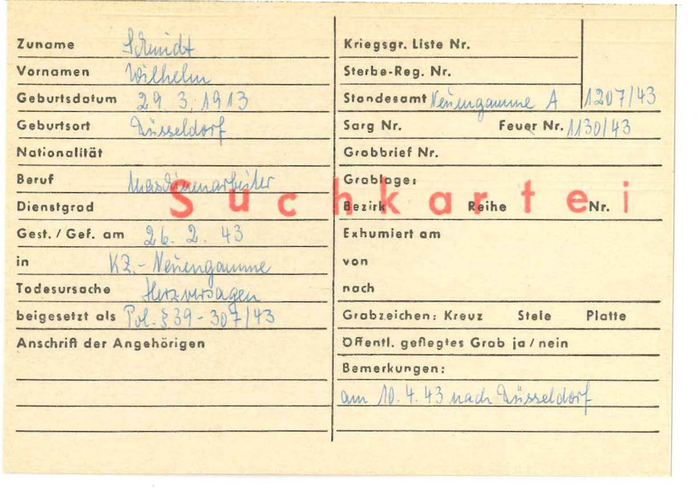 Zuname Schmidt
Vornamen Wilhelm
Geburtsdatum 29.3.1913
Geburtsort Düsseldorf
Nationalität
Beruf Maschinenarbeiter
Dienstgrad
Gest./Gef. am 26.2.43
in KZ.-Neuengamme
Todesursache Herzversagen
beigesetzt als Pol. § 39-307/43
Anschrift der Angehörigen
Suchkartei
Kriegsgr. Liste Nr.
Sterbe-Reg. Nr.
Standesamt Neuengamme A 1207/43
Sarg Nr. Feuer Nr. 1130/43
Grabbrief Nr.
Grablage:
Bezirk Reihe Nr.
Exhumiert am
von
nach
Grabzeichen: Kreuz Stele Platte
Öffentl. gepflegtes Grab ja/nein
Bemerkungen:
am 10.4.43 nach Düsseldorf